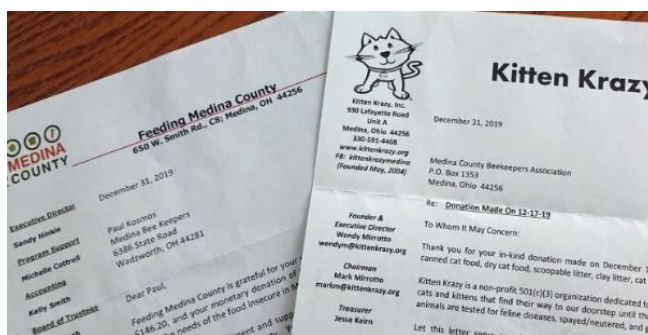 MEDINA
COUNTY
Feeding Medina County
650 W. Smith Rd., C8; Medina, OH 44256
December 31, 2019
Executive Director
Sandy Hinkle
Program Support
Michelle Cottrell
Accounting
Kelly Smith
Board of Trustees
Paul Kosmos
Medina Bee Keepers
6386 State Road
Wadsworth, OH 44281
Dear Paul,
Feeding Medina County is grateful for your
$146.20, and your monetary donation of
the needs of the food insecure in M
Kitten Krazy
Kitten Krazy, Inc.
930 Lafayette Road
Unit A
Medina, Ohio 44256
330-591-4408
www.kittenkrazy.org
FB: kittenkrazymedina
(Founded May, 2004)
Founder &
Executive Director
Wendy Mirrotto
wendym@kittenkrazy.org
Chairman
Mark Mirrotto
markm@kittenkrazy.org
Treasurer
Jesse Keirn
December 31, 2019
Medina County Beekeepers Association
P.O. Box 1353
Medina, Ohio 44256
Re: Donation Made On 12-17-19
To Whom It May Concern:
Thank you for your in-kind donation made on December 1
canned cat food, dry cat food, scoopable litter, clay litter, cat
Kitten Krazy is a non-profit 501(c)(3) organization dedicated to
cats and kittens that find their way to our doorstep until the
animals are tested for feline diseases, spayed/neutered, and
Let this letter